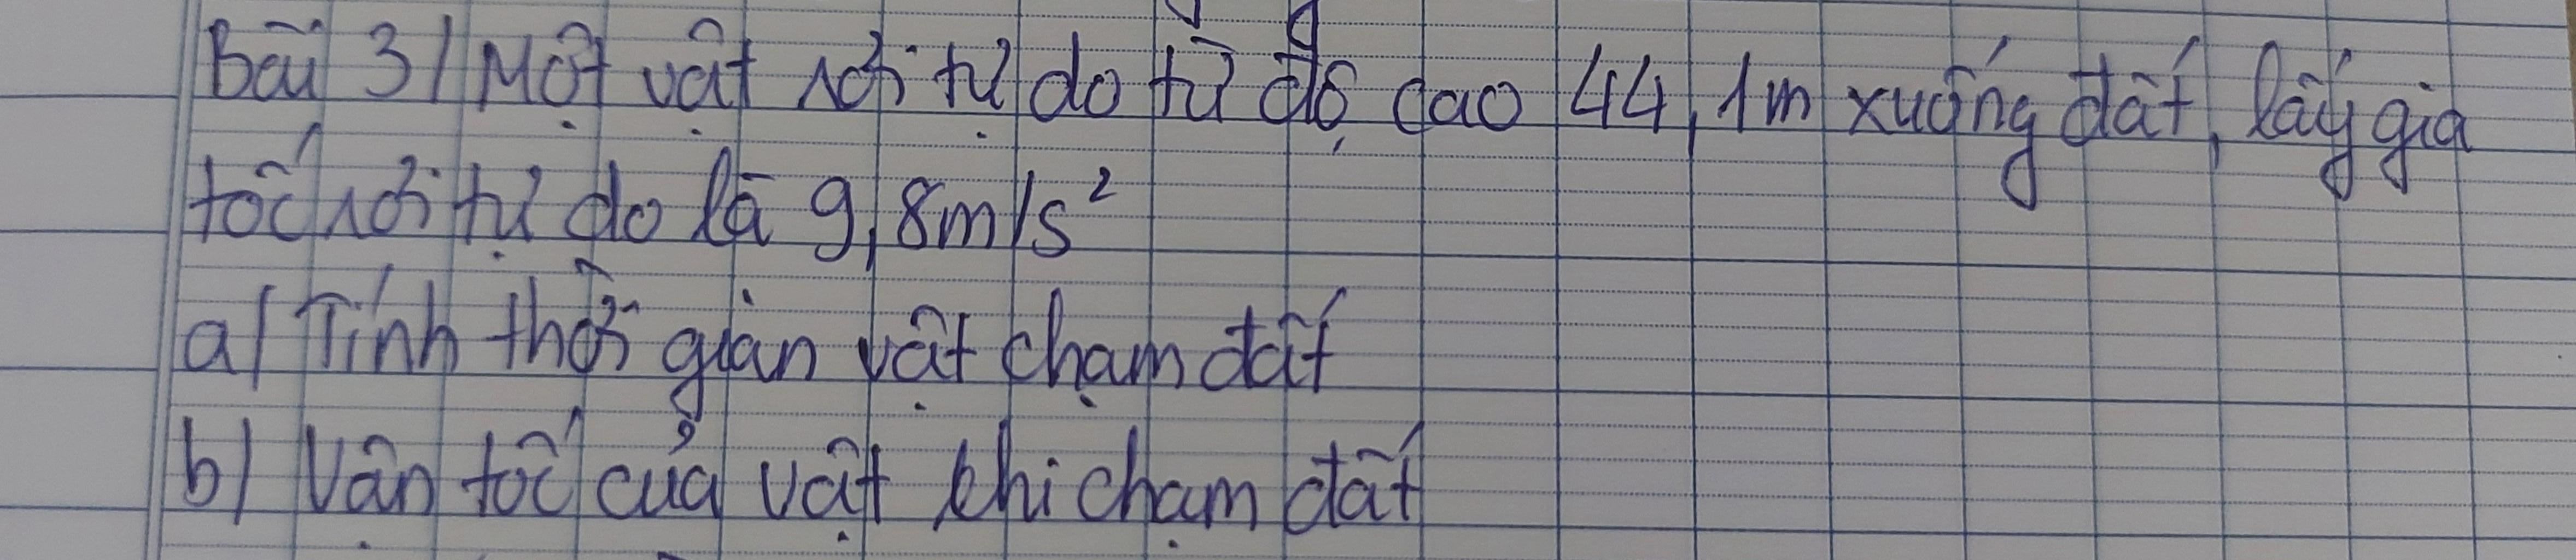 Bài 3/ Một vật rơi tự do từ độ cao 44,1m xuống đất, lấy gia
tốc rơi tự do là 9,8m/s²
a/ Tính thời gian vật chạm đất
b/ Vận tốc của vật khi chạm đất